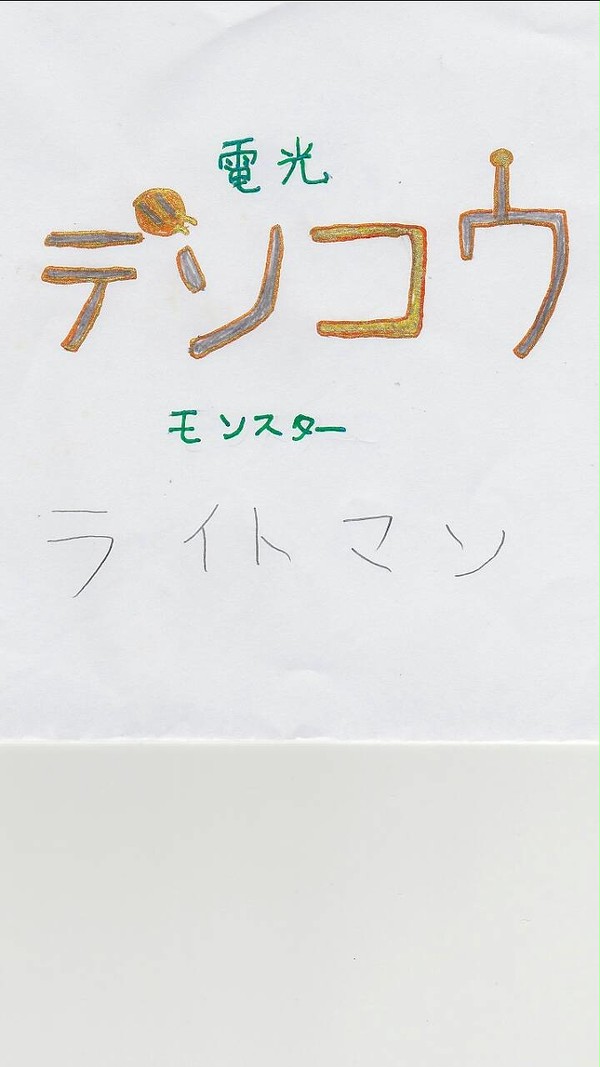 電光
デンコウ
モンスター
ライトマン